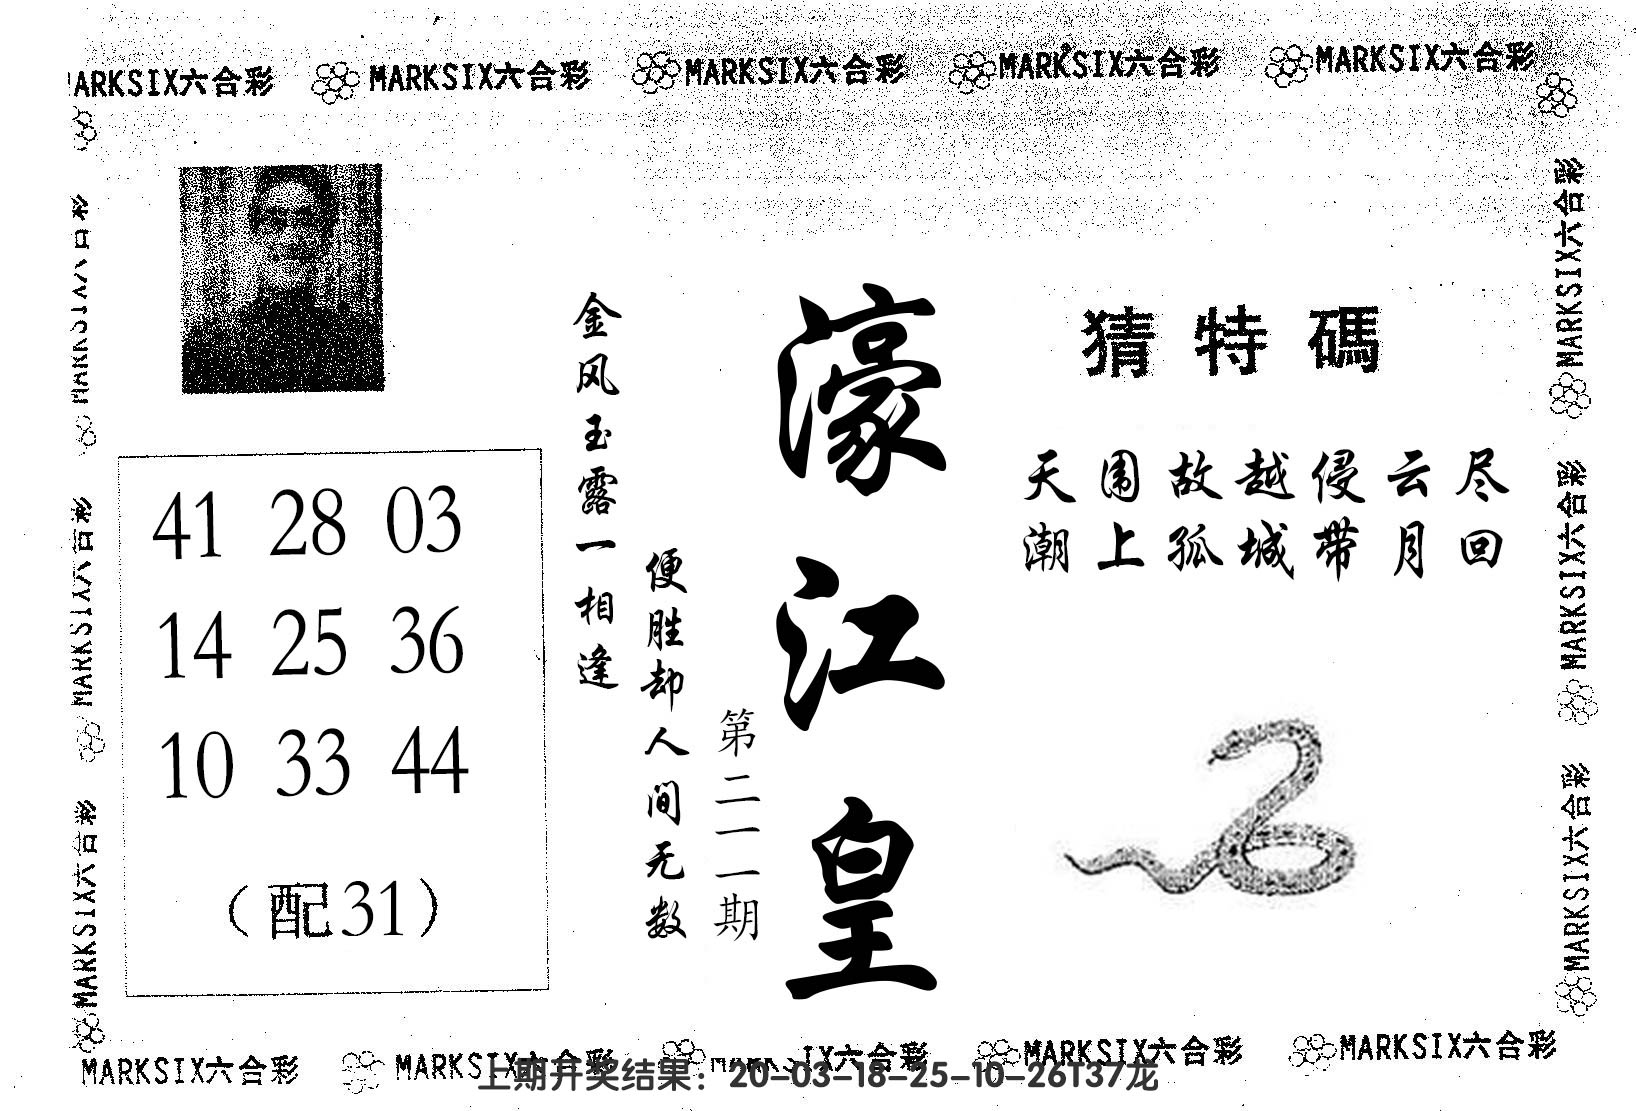 MARKSIX六合彩 MARKSIX六合彩 MARKSIX六合彩 MARKSIX六合彩
ARKSIX六合彩
猜特碼
天围故越侵云尽
潮上孤城带月回
濠江皇
第二一一期
金风玉露一相逢
便胜却人间无数
41 28 03
14 25 36
10 33 44
（配31）
MARKSIX六合彩
MARKSIX六合彩
MARKSIX六合彩
MARKSIX六合彩
MARKSIX六合彩
MARKSIX六合彩 MARKSIX六合彩 IX六合彩 MARKSIX六合彩 MARKSIX六合彩
上期开奖结果：20-03-18-25-10-26T37龙